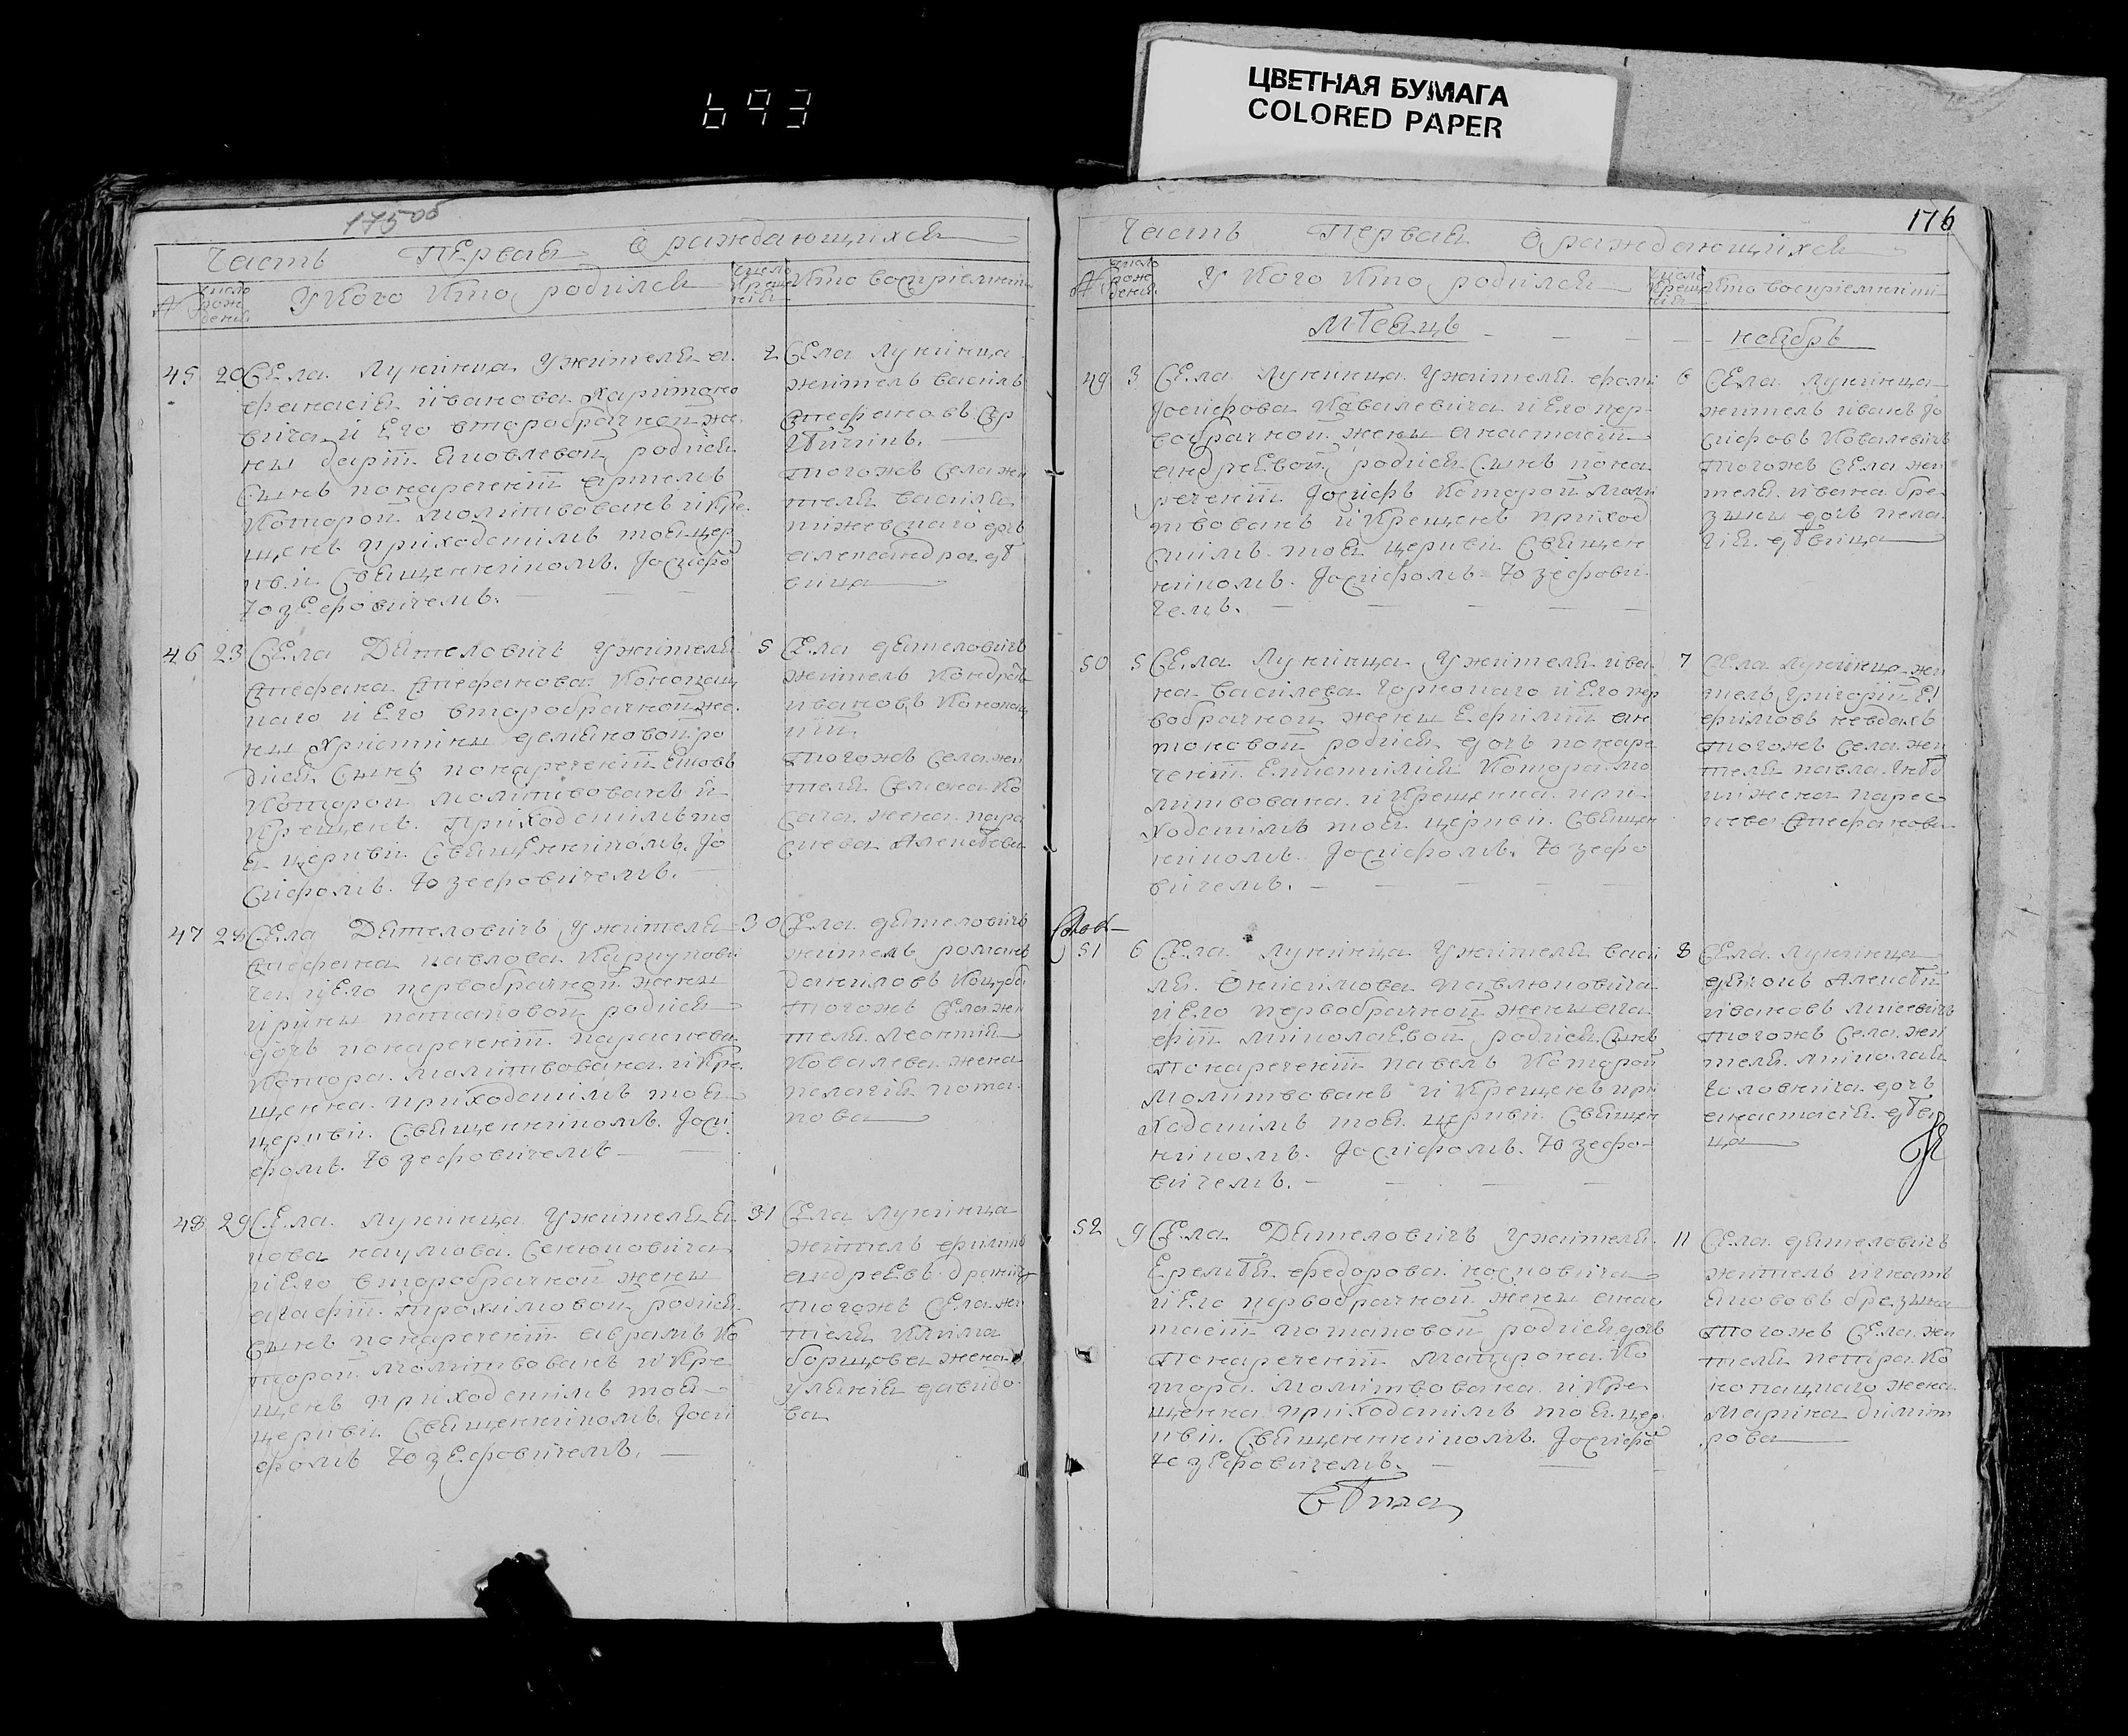 693
ЦВЕТНАЯ БУМАГА
COLORED PAPER
175 об
Часть Первая О раждающихся
№
число рождения
У Кого Кто родился
число крещения
Кто восприемники
45 20
Села Лунинца У жителя а
фанасiя иванова Харитоно
вича и Его второбрачной же
ны дарiи Яковлевой родися
Сынъ понареченiи
Которой молитвованъ и кре
щенъ приходскимъ тоя цер
кви Священникомъ Iосифо
Юзефовичемъ.
2
Села Лунинца
житель василь
Стефановъ
тогожъ Села жи
теля василия
дочь
александра дѣ
вица
46 23
Села Дятеловичъ У жителя
Стефана Стефанова Конопац
каго и Его второбрачной же
ны Христины демяновой ро
дися Сынъ понареченiи Яковъ
Которой молитвованъ и
Крещенъ Приходскимъ то
я церкви Священникомъ Iо
сифомъ Юзефовичемъ.
5
Села дятеловичъ
житель Кондратъ
ивановъ Конопац
кiй.
тогожъ Села жи
теля Семена Ко
сача жена пара
скева Алексѣева
47 28
Села Дятеловичъ У жителя
Стефана павлова Карпунови
ча и Его первобрачной жены
ирины потаповой родися
дочь понареченiи параскева
Котора молитвована и кре
щенна приходскимъ тоя
церкви Священникомъ Iоси
фомъ Юзефовичемъ
30
Села дятеловичъ
житель романъ
даниловъ Коцуба
тогожъ Села жи
теля леонтия
Ковалева жена
пелагiя пота
пова
48 29
Села Лунинца У жителя Я
кова наумова Сенюковича
и Его второбрачной жены
агафiи трохимовой родися
Сынъ понареченiи аврамъ Ко
торой молитвованъ и Кре
щенъ приходскимъ тоя
церкви Священникомъ Iоси
фомъ Юзефовичемъ.
31
Села Лунинца
житель филипъ
андреевъ
тогожъ Села жи
теля Клима
борщова жена
улянiя давидо
ва
176
Часть Первая О раждающихся
№
число рождения
У Кого Кто родился
число крещения
Кто восприемники
Мѣсяцъ
ноябрь
49 3
Села Лунинца У жителя фомы
Iосифова Кавалевича и Его пер
вобрачной жены анастасiи
андреевой родися Сынъ пона
реченiи Iосифъ Которой моли
твованъ и Крещенъ приход
скимъ тоя церкви Священ
никомъ Iосифомъ Юзефови
чемъ.
6
Села Лунинца
житель иванъ Iо
сифовъ Ковалевичъ
тогожъ Села жи
теля ивана бре
зины дочь пела
гiя дѣвица
50 5
Села Лунинца У жителя ива
на василева Горкопаго и Его пер
вобрачной жены Ефимiи ан
тоновой родися дочь понаре
ченiи Котора мо
литвована и Крещенна при
ходскимъ тоя церкви Священ
никомъ Iосифомъ Юзефо
вичемъ.
7
Села Лунинца жи
тель григорiй Е
фимовъ невдахъ
тогожъ Села жи
теля павла
жена парас
кева Стефанова
51 6
Села Лунинца У жителя васи
лiя Онисимова павлюковича
и Его первобрачной жены ага
фiи миколаевой родися Сынъ
Понареченiи павелъ Которой
молитвованъ и Крещенъ при
ходскимъ тоя церкви Священ
никомъ Iосифомъ Юзефо
вичемъ.
8
Села Лунинца
дячокъ Алексѣй
ивановъ
тогожъ Села жи
теля миколая
головнича дочь
анастасiя дѣви
ца
52 9
Села Дятеловичъ У жителя
Еремѣя федорова
и Его первобрачной жены анас
тасiи потаповой родися дочь
Понареченiи Матрона Ко
тора молитвована и Кре
щенна приходскимъ тоя цер
кви Священникомъ Iосифо
Юзефовичемъ.
11
Села дятеловичъ
житель игнатъ
Яковъ брезина
тогожъ Села жи
теля петра Ко
нопацкаго жена
Марина димит
рова